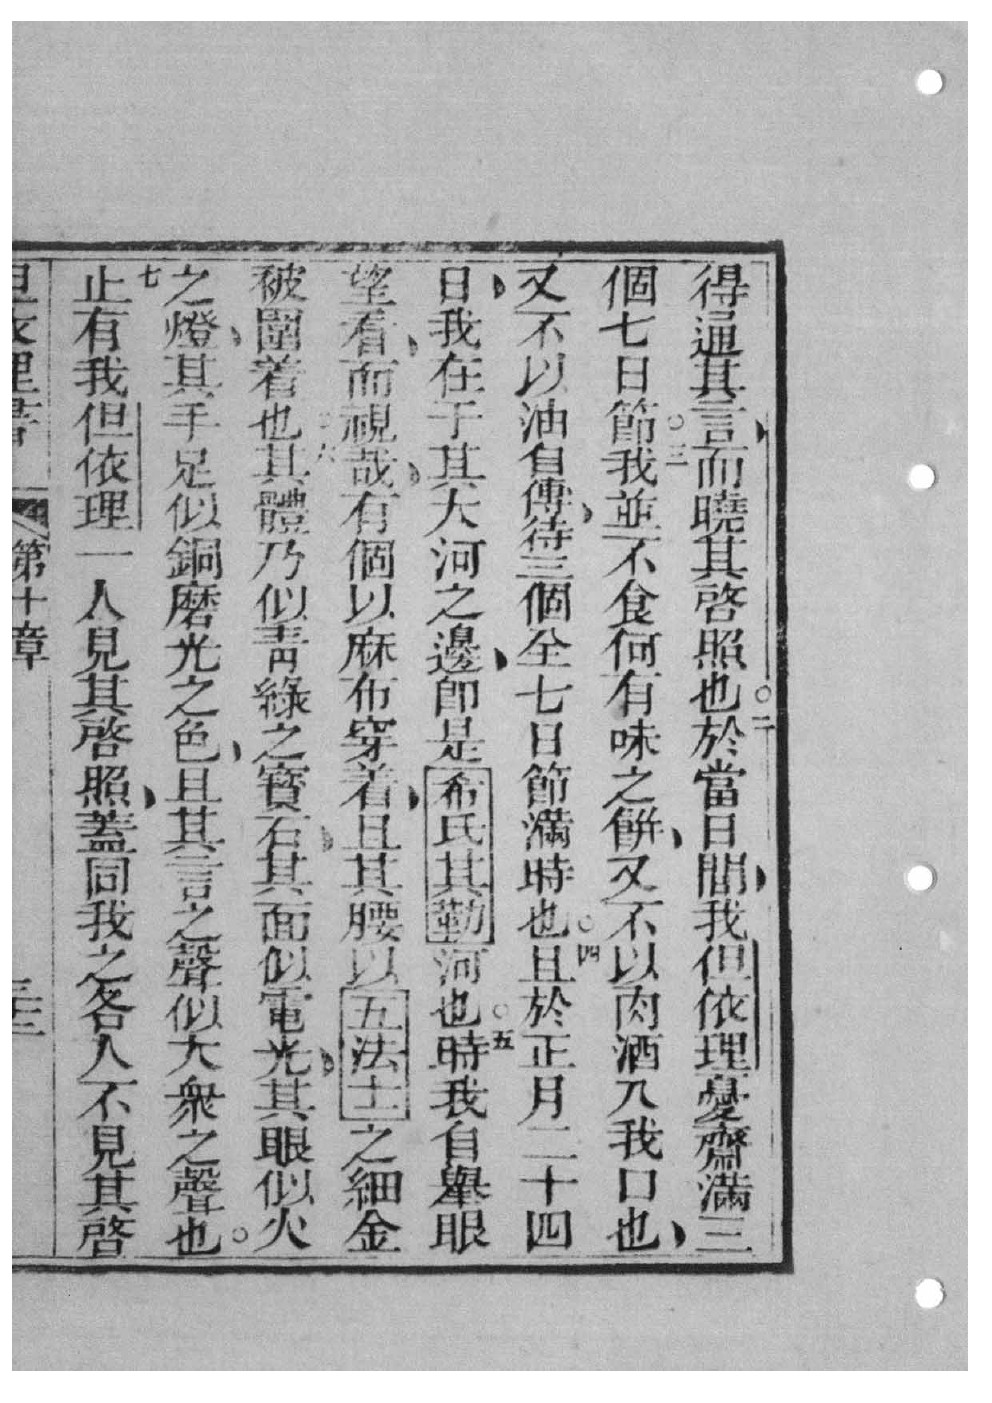 得通其言而曉其啓照也○二於當日間我但依理憂齋滿三
個七日節○三我並不食何有味之餅又不以肉酒入我口也
又不以油自傳待三個全七日節滿時也○四且於正月二十四
日我在于其大河之邊卽是希氏其勒河也○五時我自舉眼
望看而視哉有個以麻布穿着且其腰以五法士之細金
被圍着也○六其體乃似靑綠之寶石其面似電光其眼似火
之燈其手足似銅磨光之色且其言之聲似大衆之聲也○
七止有我但依理一人見其啓照蓋同我之各人不見其啓
但依理書 第十章